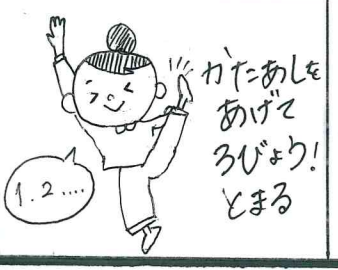 かたあしを
あげて
3びょう!
とまる
1.2....